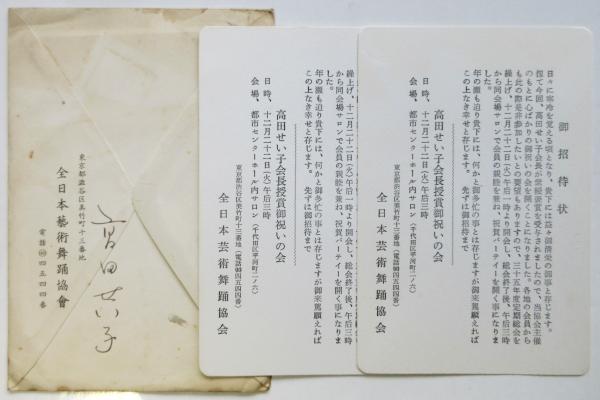 御招待状
日々に寒冷を覚える頃となり、貴下には益々御清栄の御事と存じます。
扨て今回、高田せい子会長が紫綬褒賞を受与されましたので、当協会主催
のもとに心ばかりの御祝いの会を開くことになりました。各地の会員から
も此の際是非参加したいとの要望もありますので、三十五年度定期総会を
繰上げ、十二月二十二日(火)午后一時より開会し、総会終了後、午后三時
から同会場サロンで会員の親睦を兼ね、祝賀パーテイーを開く事になりま
した。
年の瀬も迫り貴下には、何かと御多忙の事とは存じますが御来駕願えれば
この上なき幸せと存じます。 先ずは御招待まで
高田せい子会長授賞御祝いの会
日時、十二月二十二日(火)午后三時
会場、都市センターホール内サロン(千代田区平河町二ノ六)
東京都渋谷区美竹町十三番地(電話(40)四五四四番)
全日本芸術舞踊協会
繰上げ、十二月二十二日(火)午后一時より開会し、総会終了後、午后三時
から同会場サロンで会員の親睦を兼ね、祝賀パーテイーを開く事になりま
した。
年の瀬も迫り貴下には、何かと御多忙の事とは存じますが御来駕願えれば
この上なき幸せと存じます。 先ずは御招待まで
高田せい子会長授賞御祝いの会
日時、十二月二十二日(火)午后三時
会場、都市センターホール内サロン(千代田区平河町二ノ六)
東京都渋谷区美竹町十三番地(電話(40)四五四四番)
全日本芸術舞踊協会
高田せい子
東京都澁谷区美竹町十三番地
全日本藝術舞踊協會
電話(40)四五四四番